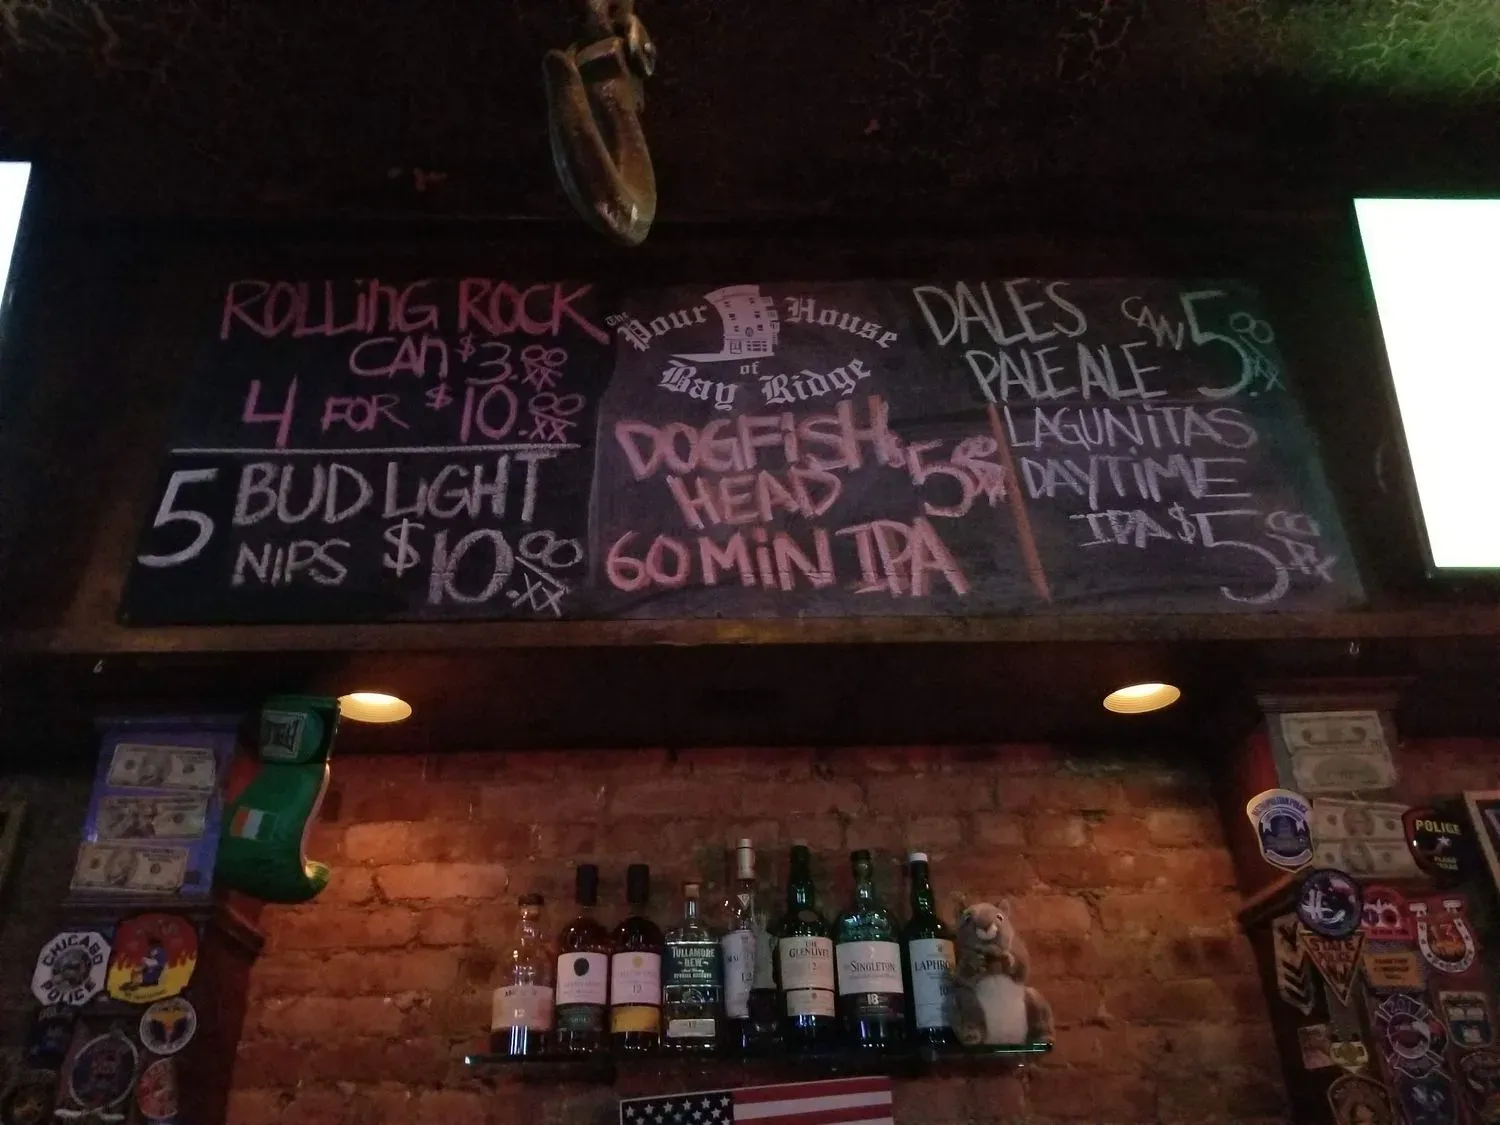 ROLLiNG ROCK
CAN $3.00
4 FOR $10.00
5 BUD LiGHT
NIPS $10.00
The Pour House
of
Bay Ridge
DOGFiSH
HEAD 5$
60 MiN IPA
DALES CAN 5.00
PALE ALE
LAGUNiTAS
DAYTiME
IPA $5.00
CHICAGO
POLICE
12
12
TULLAMORE
DEW
12
THE
GLENLIVET
12
SINGLETON
18
LAPHRO
10
POLICE
STATE
POLICE
13